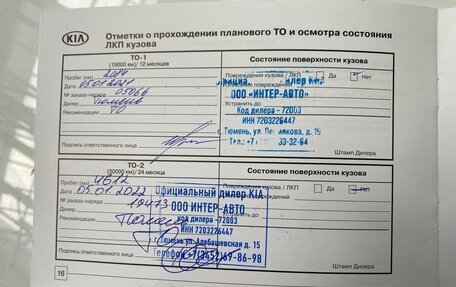 KIA
Отметки о прохождении планового ТО и осмотра состояния
ЛКП кузова
ТО-1
(15000 км)/ 12 месяцев
Состояние поверхности кузова
Пробег (км) 2014
Повреждения кузова / ЛКП Да Нет
Дата 05.01.2021
№ заказа-наряда 05066
Дилер Тюмень
Рекомендации ТО
Устранить до
ООО «ИНТЕР-АВТО»
Код дилера - 72003
ИНН 7203226447
г.Тюмень, ул. 15
33-32-64
Подпись ответственного лица
Штамп Дилера
ТО-2
(30000 км)/ 24 месяца
Состояние поверхности кузова
Пробег (км) 4612
Повреждения кузова / ЛКП Да Нет
Дата 05.01.2022
№ заказа-наряда 19473
Дилер Тюмень
Рекомендации
Официальный дилер KIA
ООО ИНТЕР-АВТО
Код дилера -72003
ИНН 7203226447
г.Тюмень ул. Алебашевская д. 15
Телефон +7(3452)69-86-98
Подпись ответственного лица
Штамп Дилера
16